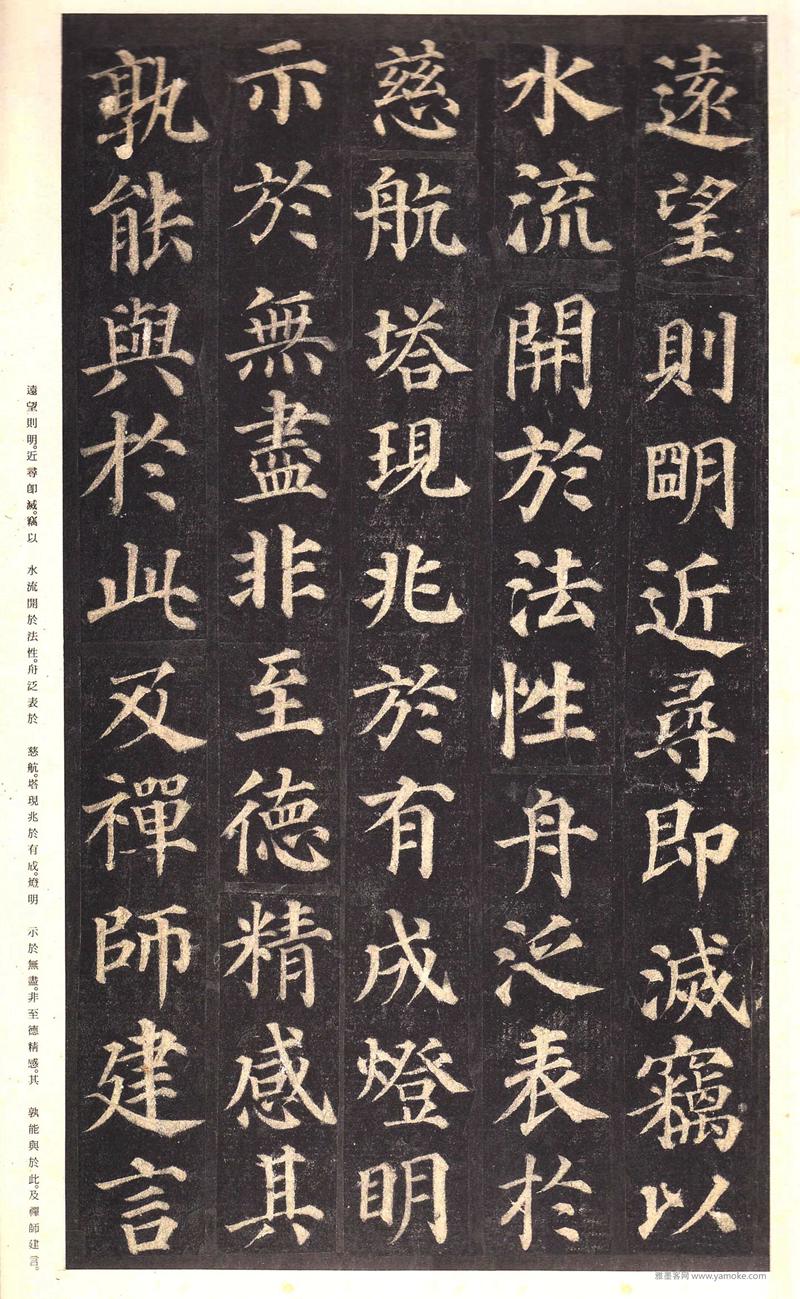 遠望則明近尋即滅竊以
水流開於法性舟泛表於
慈航塔現兆於有成燈明
示於無盡非至德精感其
孰能與於此及禪師建言
遠望則明。近尋卽滅。竊以 水流開於法性。舟泛表於 慈航。塔現兆於有成。燈明 示於無盡。非至德精感。其 孰能與於此。及禪師建言。
雅墨客网 www.yamoke.com